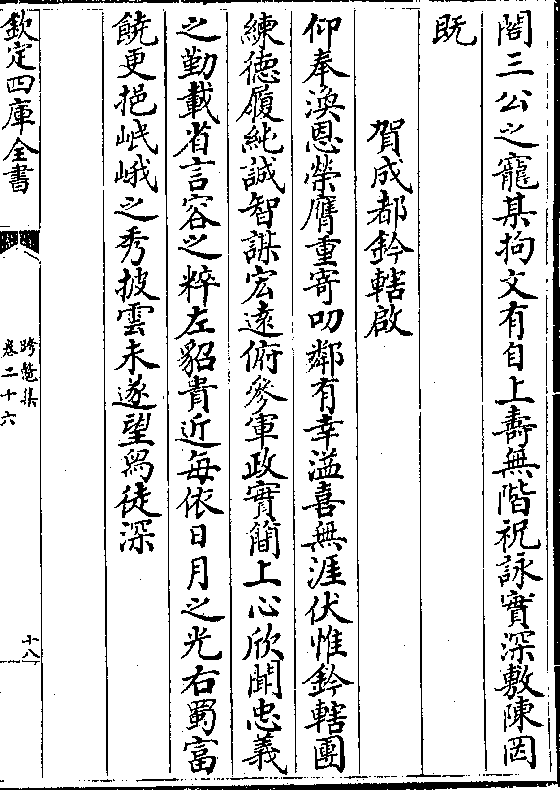 閤三公之寵某拘文有自上壽無階祝詠實深敷陳罔
既
賀成都鈐轄啟
仰奉渙恩榮膺重寄叨鄰有幸溢喜無涯伏惟鈐轄團
練德履純誠智謀宏遠俯參軍政實簡上心欣聞忠義
之勤載省言容之粹左貂貴近每依日月之光右蜀富
饒更挹岷峨之秀披雲未遂望舄徒深
欽定四庫全書
跨鼇集
卷二十六
十八